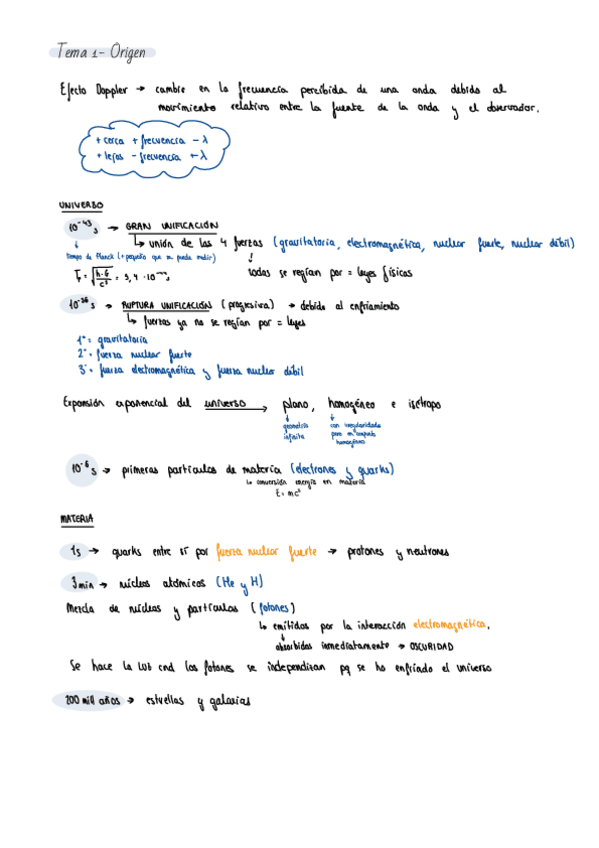 Tema 1- Origen
Efecto Doppler → cambio en la frecuencia percibida de una onda debido al
movimiento relativo entre la fuente de la onda y el observador.
+ cerca + frecuencia - λ
+ lejos - frecuencia + λ
UNIVERSO
10⁻⁴³ s → GRAN UNIFICACIÓN
↳ unión de las 4 fuerzas (gravitatoria, electromagnética, nuclear fuerte, nuclear débil)
tiempo de Planck (+ pequeño que se puede medir)
todas se regían por = leyes físicas
10⁻³⁶ s → RUPTURA UNIFICACIÓN (progresiva) → debido al enfriamiento
↳ fuerzas ya no se regían por = leyes
1º= gravitatoria
2º= fuerza nuclear fuerte
3º= fuerza electromagnética y fuerza nuclear débil
Expansión exponencial del universo → plano, homogéneo e isótropo
geometría
infinita
con irregularidades
pero en conjunto
homogéneo
10⁻⁶ s → primeras partículas de materia (electrones y quarks)
↳ conversión energía en materia
E = mc²
MATERIA
1s → quarks entre sí por fuerza nuclear fuerte → protones y neutrones
3min → núcleos atómicos (He y H)
Mezcla de núcleos y partículas (fotones)
↳ emitidos por la interacción electromagnética.
absorbidos inmediatamente → OSCURIDAD
Se hace la luz cnd los fotones se independizan pq se ha enfriado el universo
200 mill años → estrellas y galaxias